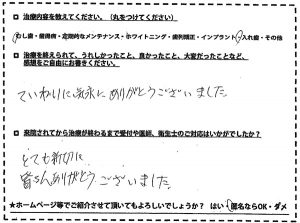 □ 治療内容を教えてください。(丸をつけてください)
むし歯・歯周病・定期的なメンテナンス・ホワイトニング・歯列矯正・インプラント・入れ歯・その他
□ 治療を終えられて、うれしかったこと、良かったこと、大変だったことなど、
感想をご自由にお書きください。
ていねいに
ありがとうございました。
□ 来院されてから治療が終わるまで受付や医師、衛生士のご対応はいかがでしたか?
とても親切に
皆さんありがとうございました。
★ホームページ等でご紹介させて頂いてもよろしいでしょうか? はい・匿名ならOK・ダメ